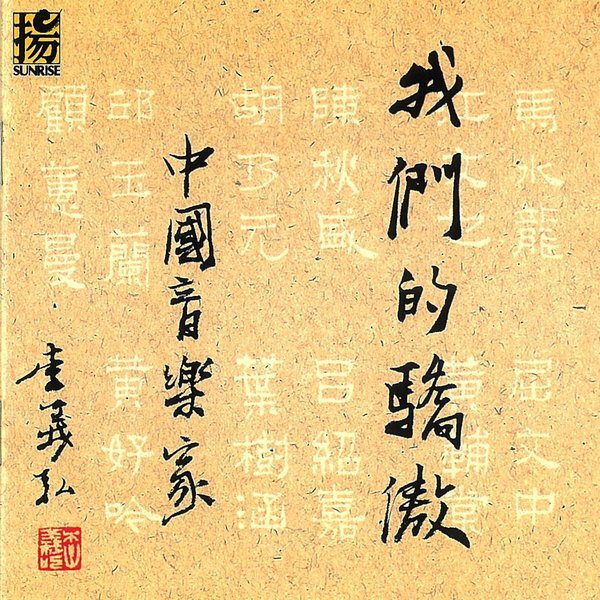 揚
SUNRISE
我們的驕傲
中國音樂家
李義弘
馬水龍
屈文中
江文也
黃輔棠
陳秋盛
呂紹嘉
胡乃元
葉樹涵
邱玉蘭
黃好吟
顧蕙曼